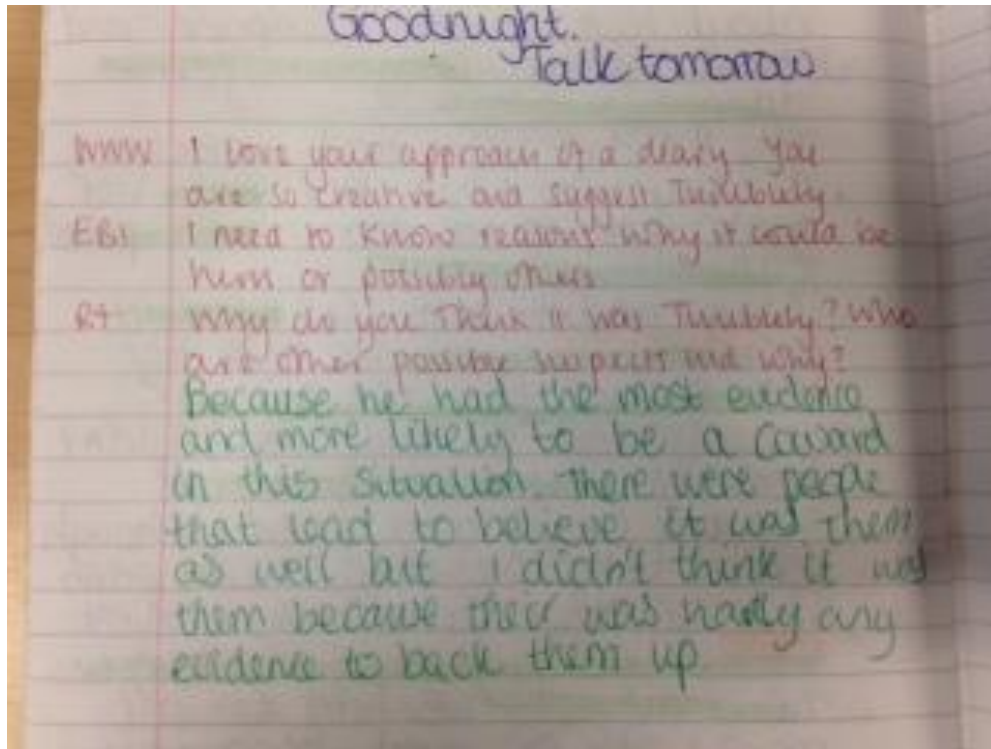 Goodnight.
Talk tomorrow
WWW I love your approach of a diary. You
are so creative and suggest
EBI I need to know reasons why it could be
him or possibly others
Why do you think it was ? Who
are other possible suspects and why?
Because he had the most evidence
and more likely to be a coward
in this situation. There were people
that lead to believe it was them
as well but I didn't think it was
them because their was hardly any
evidence to back them up